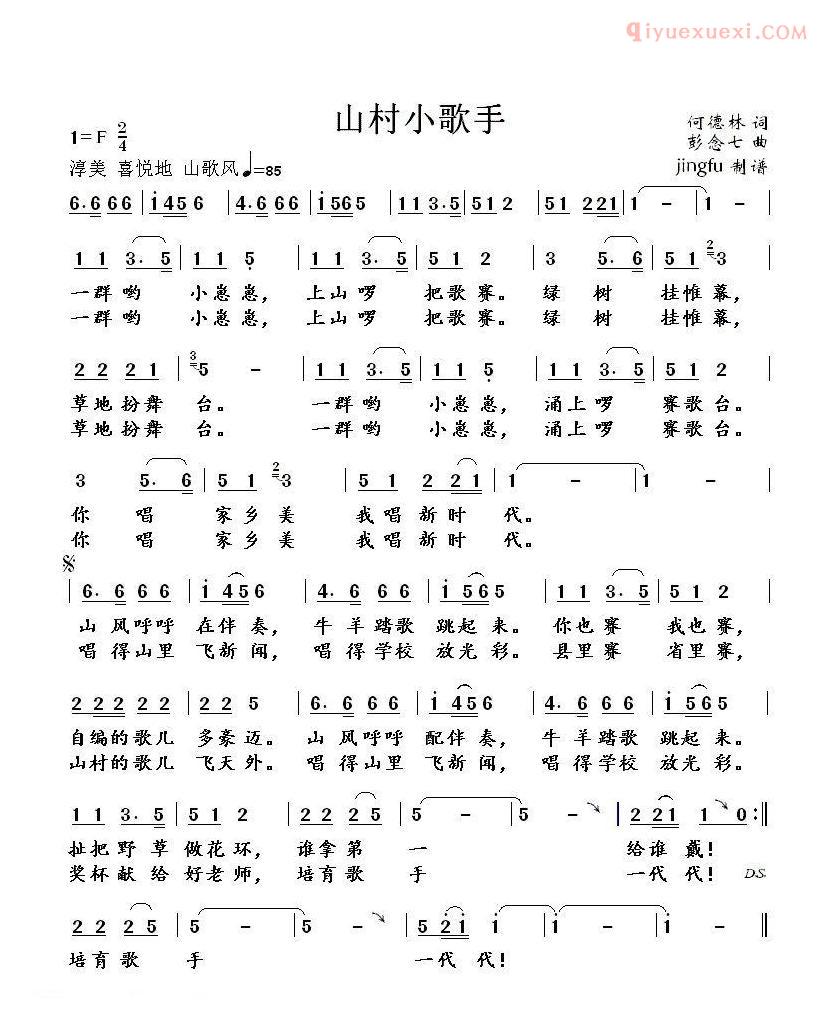 qiyuexuexi.com
山村小歌手
1=F 2/4
何德林 词
彭念七 曲
淳美 喜悦地 山歌风 ♩=85
jingfu 制谱
6. 6 6 6 | i 4 5 6 | 4. 6 6 6 | i 5 6 5 | 1 1 3. 5 | 5 1 2 | 5 1 2 2 1 | 1 - | 1 - |
1 1 3. 5 | 1 1 5 | 1 1 3. 5 | 5 1 2 | 3 5. 6 | 5 1 2 3 |
一群哟 小崽崽, 上山啰 把歌赛。 绿 树 挂帷幕,
一群哟 小崽崽, 上山啰 把歌赛。 绿 树 挂帷幕,
2 2 2 1 | 3 5 - | 1 1 3. 5 | 1 1 5 | 1 1 3. 5 | 5 1 2 |
草地扮舞 台。 一群哟 小崽崽, 涌上啰 赛歌台。
草地扮舞 台。 一群哟 小崽崽, 涌上啰 赛歌台。
3 5. 6 | 5 1 2 3 | 5 1 2 2 1 | 1 - | 1 - |
你 唱 家乡美 我唱新时 代。
你 唱 家乡美 我唱新时 代。
6. 6 6 6 | i 4 5 6 | 4. 6 6 6 | i 5 6 5 | 1 1 3. 5 | 5 1 2 |
山 风呼呼 在伴 奏, 牛 羊踏歌 跳起 来。 你也赛 我也赛,
唱 得山里 飞新 闻, 唱 得学校 放光 彩。 县里赛 省里赛,
2 2 2 2 2 | 2 2 5 | 6. 6 6 6 | i 4 5 6 | 4. 6 6 6 | i 5 6 5 |
自编的歌儿 多豪迈。 山 风呼呼 配伴 奏, 牛 羊踏歌 跳起 来。
山村的歌儿 飞天外。 唱 得山里 飞新 闻, 唱 得学校 放光 彩。
1 1 3. 5 | 5 1 2 | 2 2 2 5 | 5 - | 5 - | 2 2 1 | 1 0 :‖
扯把野草 做花环, 谁拿第 一 给谁 戴!
奖杯献给 好老师, 培育歌 手 一代 代! D.S.
2 2 2 5 | 5 - | 5 - | 5 2 i | i - | i - ‖
培育歌 手 一代 代!